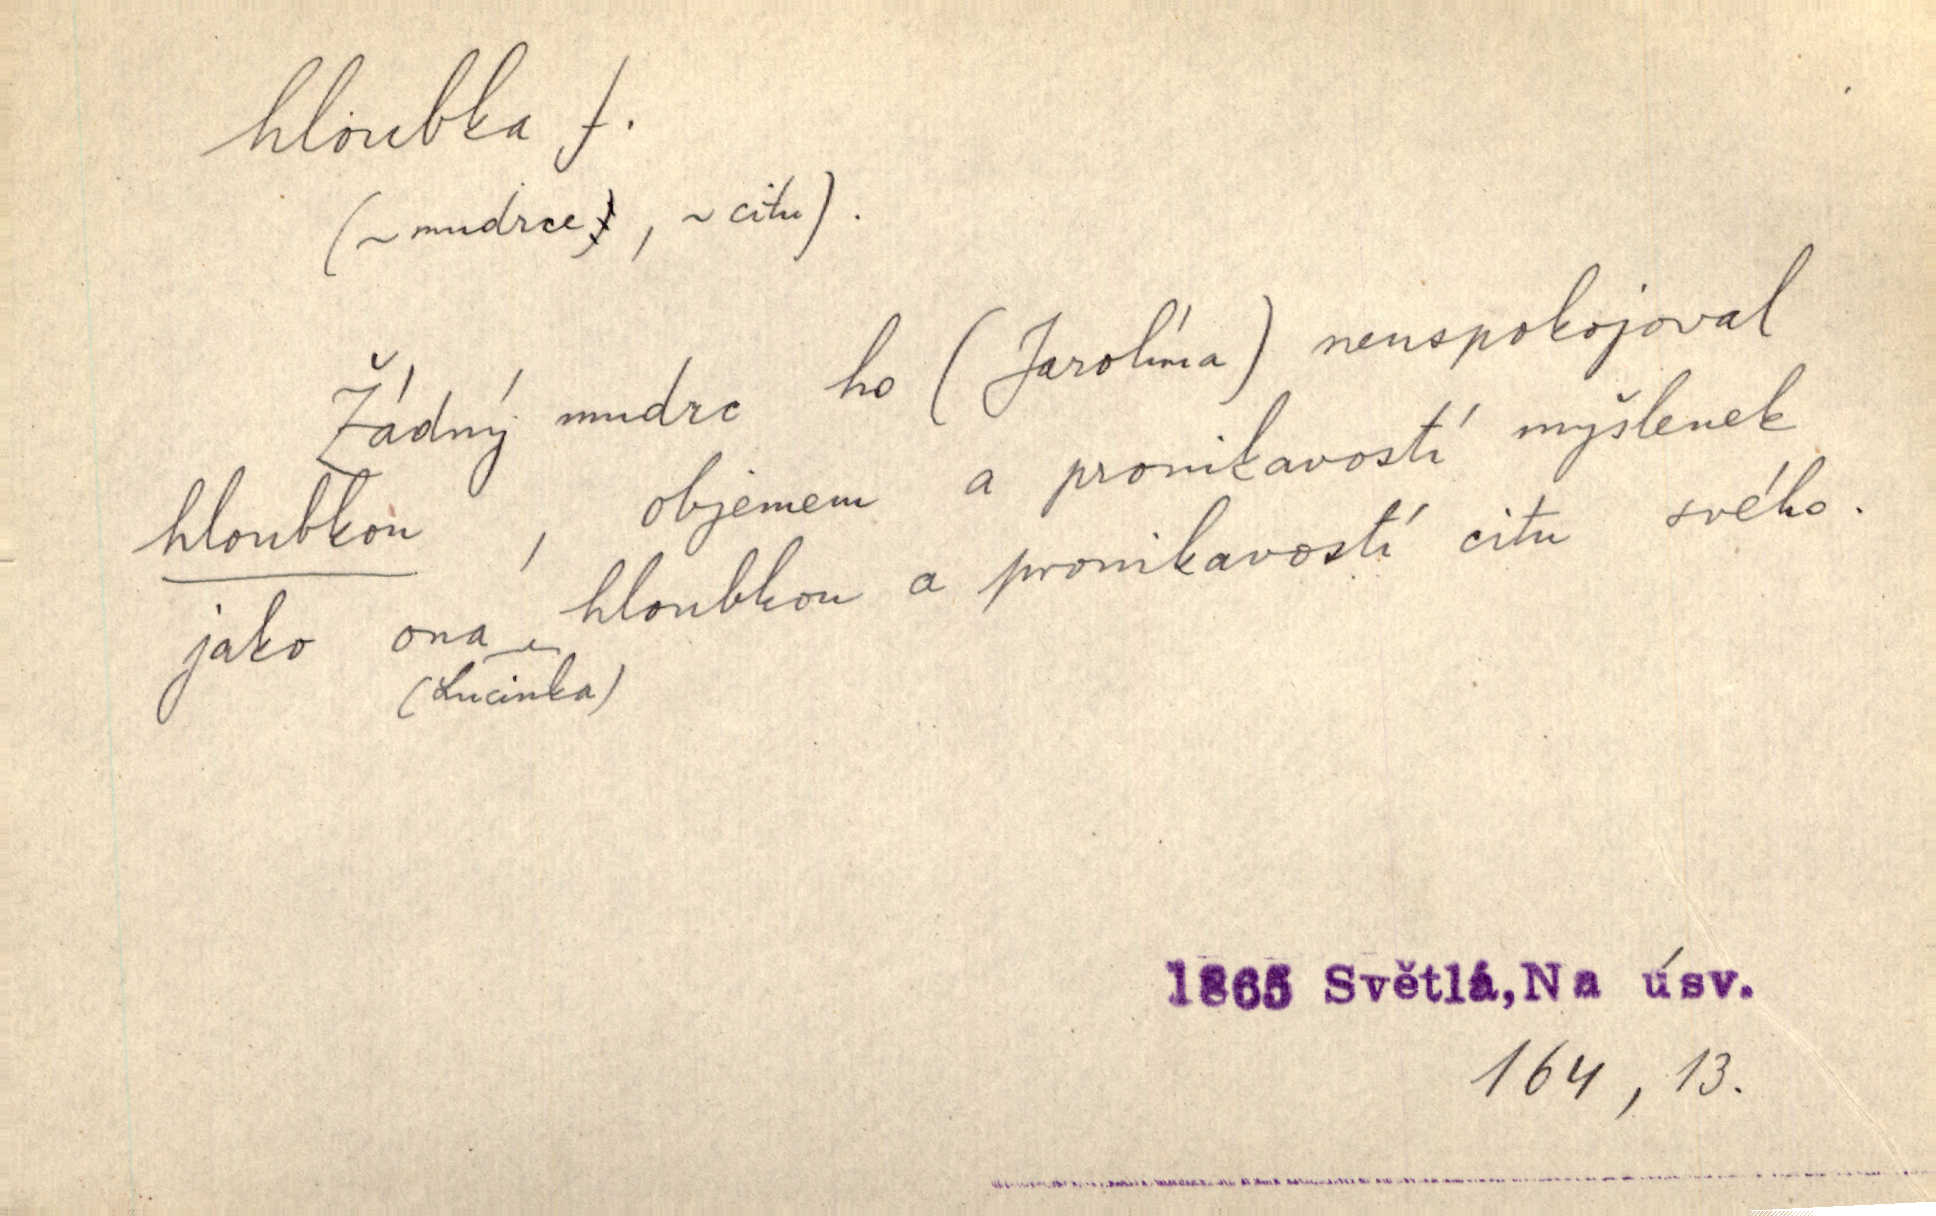 hloubka f.
(~mudrce, ~citu).
Žádný mudrc ho (Jarolíma) neuspokojoval
hloubkou, objemem a pronikavostí myšlenek
jako ona hloubkou a pronikavostí citu svého.
(Lucinka)
1865 Světlá,Na úsv.
164, 13.